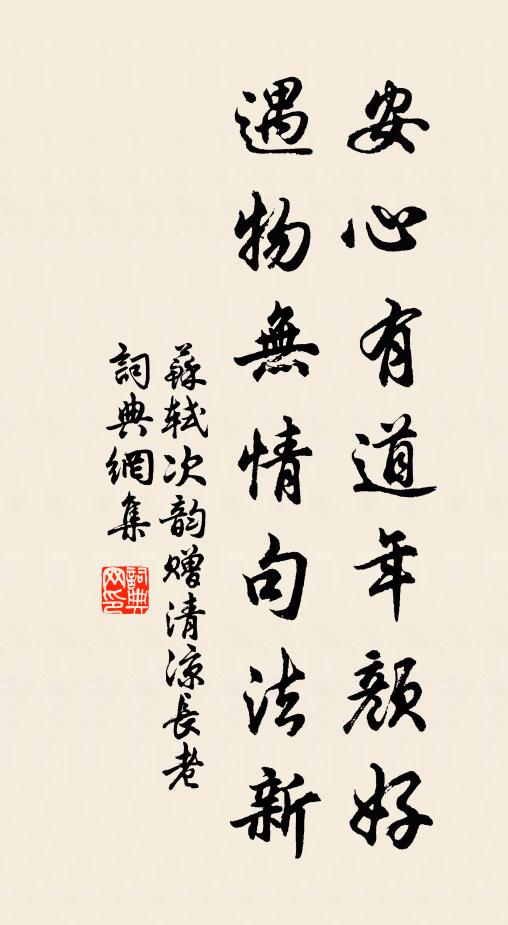 安心有道年顏好
遇物無情句法新
蘇軾次韵贈清涼長老
詞典網集
詞典网印